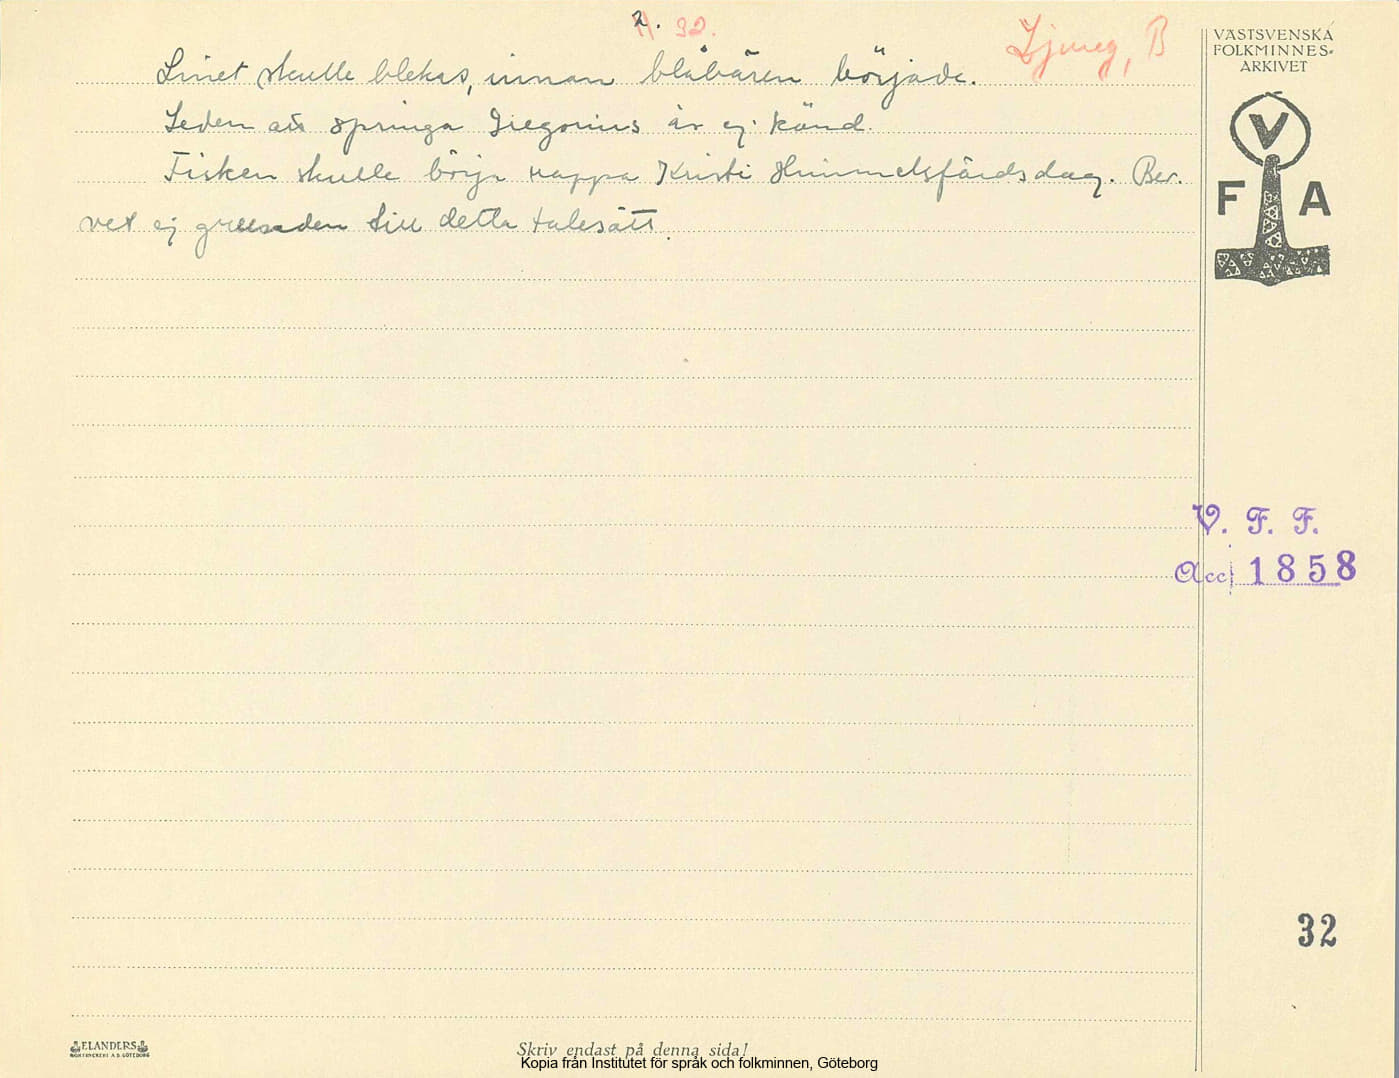 2.
H 32.
Ljung, B
VÄSTSVENSKA
FOLKMINNES-
ARKIVET
Linet skulle blekas, innan blåbären började.
Seden att springa Gregorius är ej känd.
Fisken skulle börja nappa Kristi Himmelsfärdsdag. Ber.
vet ej grunden till detta talesätt.
V
F A
V. F. F.
Acc 1858
32
ELANDERS
BOKTRYCKERI A.B. GÖTEBORG
Skriv endast på denna sida!
Kopia från Institutet för språk och folkminnen, Göteborg